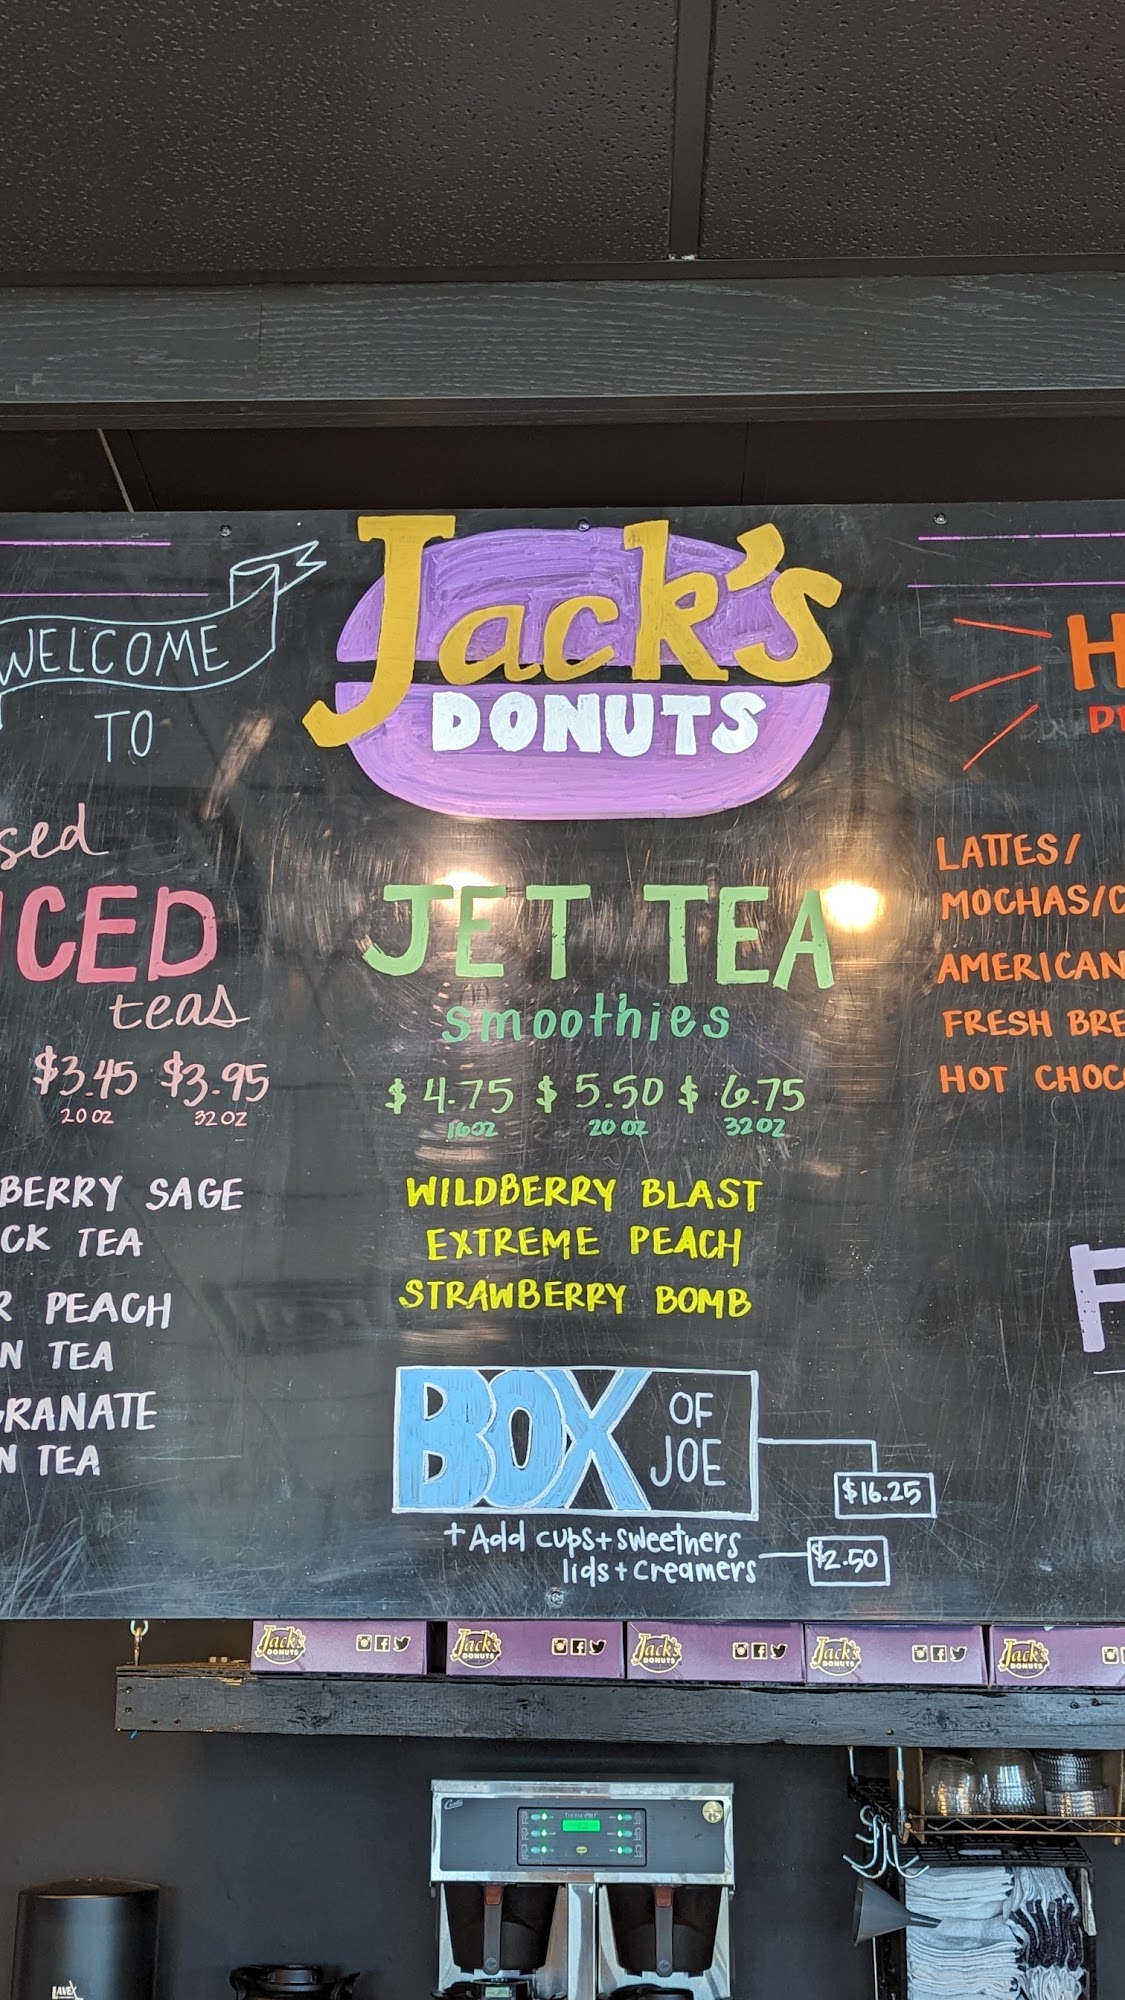 WELCOME
TO
Jack's
DONUTS
ICED
teas
$3.45 $3.95
20 OZ 32 OZ
BERRY SAGE
TEA
PEACH
TEA
TEA
JET TEA
smoothies
$ 4.75 $ 5.50 $ 6.75
16 OZ 20 OZ 32 OZ
WILDBERRY BLAST
EXTREME PEACH
STRAWBERRY BOMB
BOX OF
JOE
$16.25
+Add cups+sweetners
lids+creamers
$2.50
LATTES/
MOCHAS/
AMERICAN
FRESH BRE
HOT CHOC
Jack's
DONUTS
Jack's
DONUTS
Jack's
DONUTS
Jack's
DONUTS
Jack's
DONUTS
Curtis